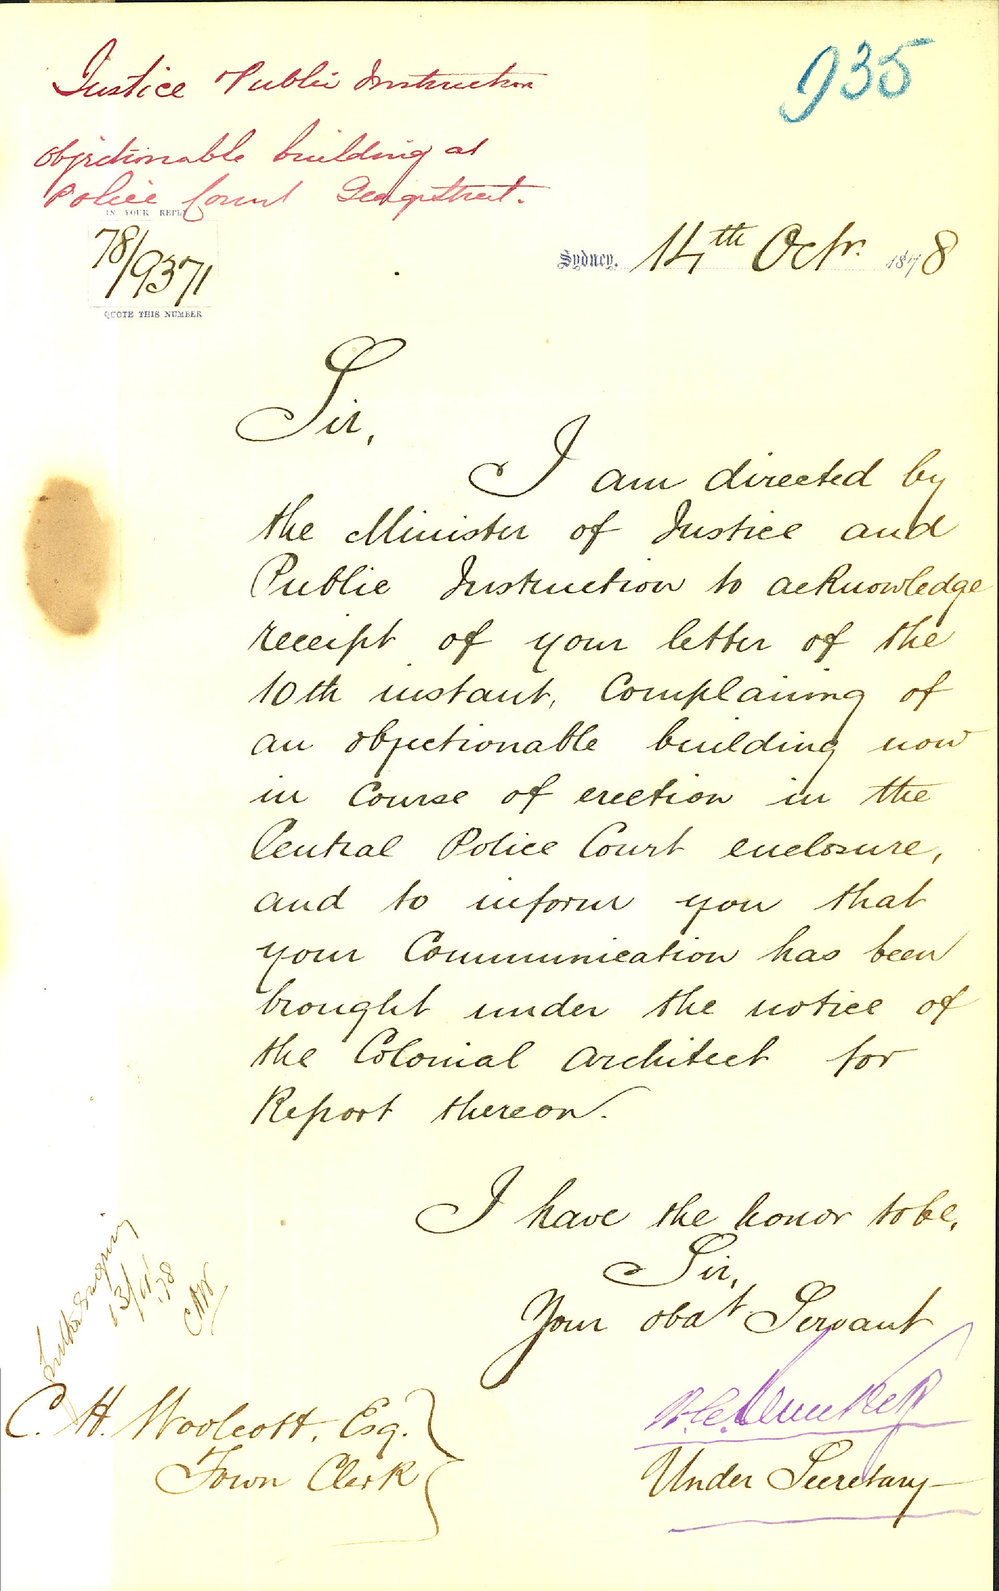 Justice & Public Instruction
935
objectionable building at
Police Court George Street.
IN YOUR REPLY
78/9371
QUOTE THIS NUMBER
Sydney, 14th Octr. 1878
Sir,
I am directed by
the Minister of Justice and
Public Instruction to acknowledge
receipt of your letter of the
10th instant, Complaining of
an objectionable building now
in Course of erection in the
Central Police Court enclosure,
and to inform you that
your Communication has been
brought under the notice of
the Colonial Architect for
Report thereon.
I have the honor to be,
Sir,
Your obdt Servant
Under Secretary
C. H. Woolcott, Esq.
Town Clerk
13/11/78
CHW